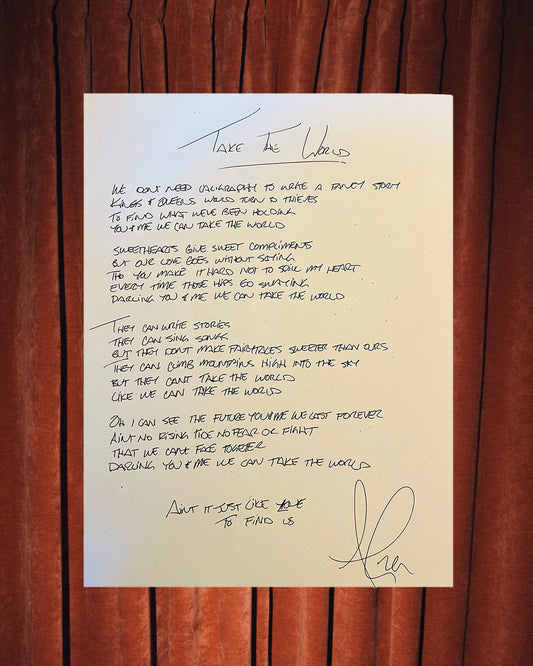 TAKE THE WORLD
WE DONT NEED CALIGRAPHY TO WRITE A FANCY STORY
KINGS & QUEENS WOULD TURN TO THIEVES
TO FIND WHAT WEVE BEEN HOLDING
YOU & ME WE CAN TAKE THE WORLD
SWEETHEARTS GIVE SWEET COMPLIMENTS
BUT OUR LOVE GOES WITHOUT SAYING
THO YOU MAKE IT HARD NOT TO SPILL MY HEART
EVERY TIME THOSE HIPS GO SWAYING
DARLING YOU & ME WE CAN TAKE THE WORLD
THEY CAN WRITE STORIES
THEY CAN SING SONGS
BUT THEY DON'T MAKE FAIRYTALES SWEETER THAN OURS
THEY CAN CLIMB MOUNTAINS HIGH INTO THE SKY
BUT THEY CANT TAKE THE WORLD
LIKE WE CAN TAKE THE WORLD
OH I CAN SEE THE FUTURE YOU & ME WE LAST FOREVER
AINT NO RISING TIDE NO FEAR OR FIGHT
THAT WE CANT FACE TOGETHER
DARLING YOU & ME WE CAN TAKE THE WORLD
AINT IT JUST LIKE LOVE
TO FIND US